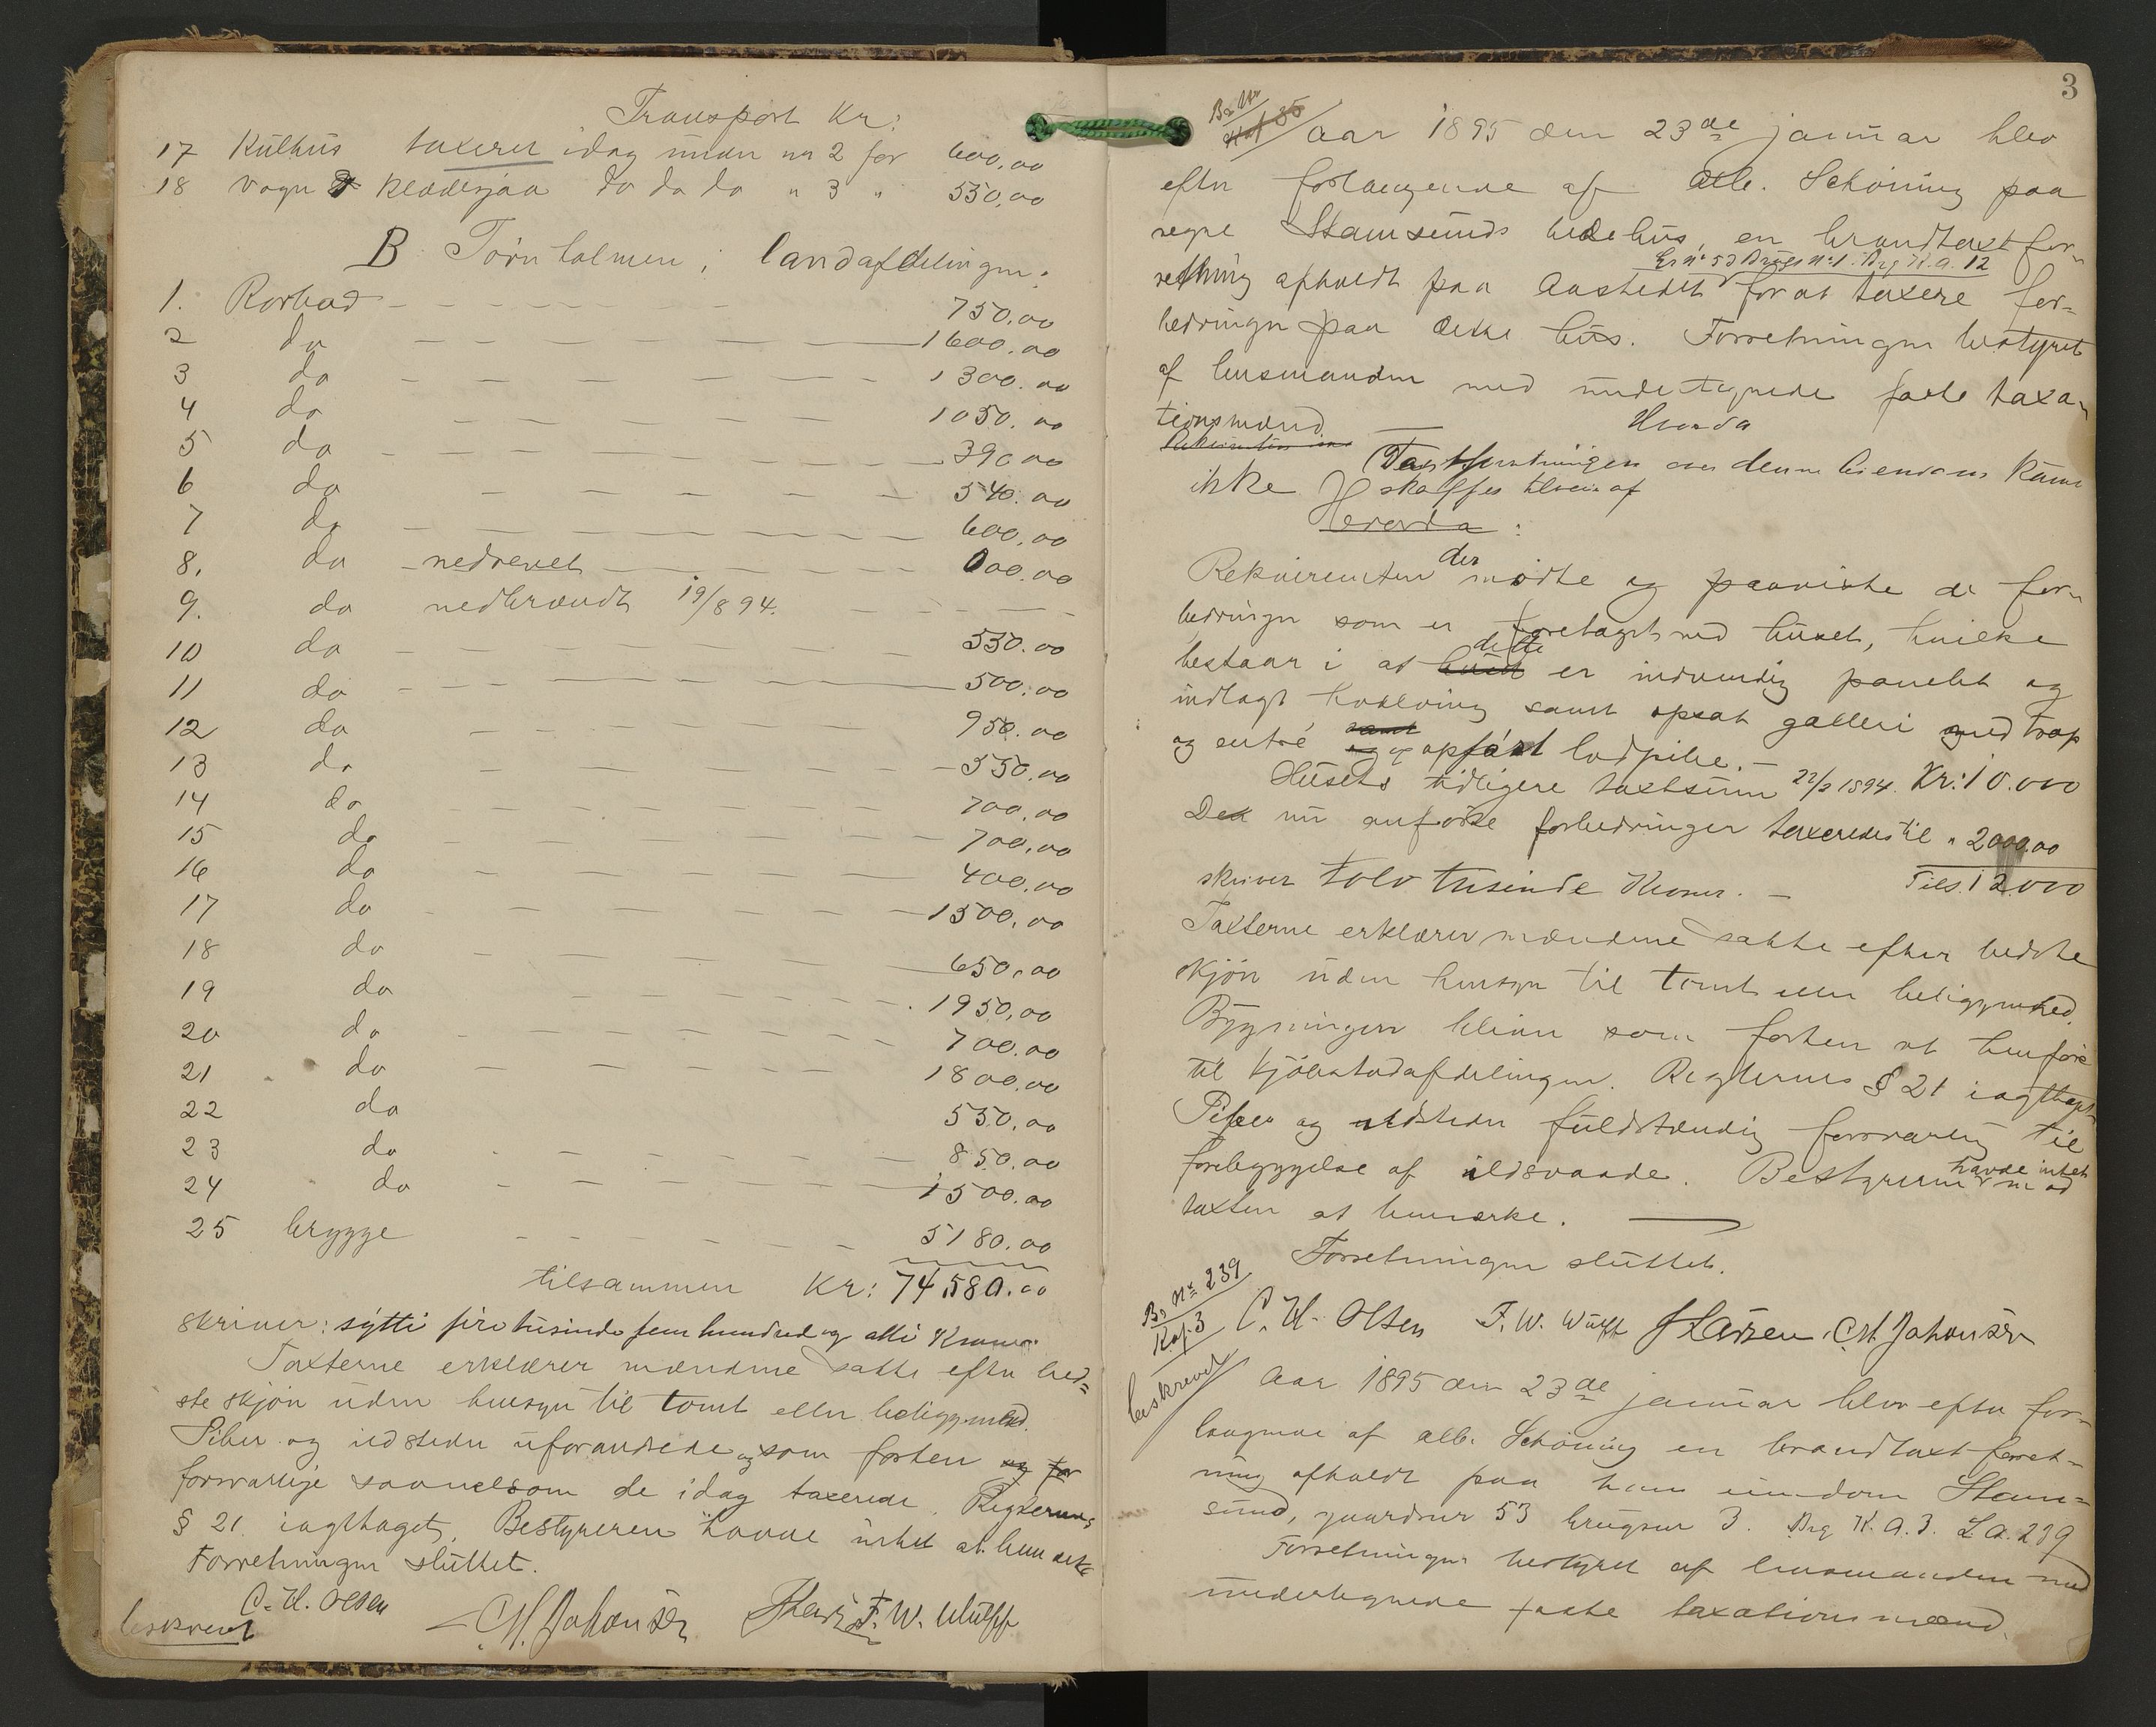 Transport Kr:
17 Kulhus taxeret idag under nr 2 for 600,00
18 Vogn & Klædesjaa do do do " 3 " 550,00
B Törnholmen, landafdelingen:
1. Rorbod 750.00
2 do 1600.00
3 do 1300.00
4 do 1050.00
5 do 390.00
6 do 540.00
7 do 600,00
8. do nedrevet 000.00
9. do nedbrændt 19/8 94.
10 do 550.00
11 do 500.00
12 do 950.00
13 do 550.00
14 do 700,00
15 do 700,00
16 do 400,00
17 do 1500,00
18 do 650,00
19 do 1950,00
20 do 700.00
21 do 1800.00
22 do 550,00
23 do 850.00
24 do 1500.00
25 brygge 5180.00
tilsammen Kr: 74,580.00
skriver: sytti fire tusinde fem hundred og otti Kroner.
Taxterne erklærer mændene satte efter bed=
ste skjön uden hensyn til tomt eller beliggenhed.
Piber og ildsteder uforandrede og som forhen og for
forsvarlige saavelsom de idag taxerede. Reglernes
§ 21 iagttaget. Bestyreren havde intet at bemærke
Forretningen sluttet.
C. H. Olsen C M Johansen J Larsen F. W. Wulff
beskrevet
3
Aar 1895 den 23de januar blev
efter forlangende af alb. Schöning paa
vegne Stamsunds bedehus, en brandtaxtfor=
Gr nr 53 Brugs nr 1. Brg K. a. 12
retning afholdt paa Aastedet for at taxere for=
bedringer paa dette hus. Forretningen bestyret
af lensmanden med undertegnede faste taxa=
tionsmænd.
Hvorda
Rekvirenten
Taxtforretningen over denne Eiendom kunne
ikke skaffes tilveie af
Hvorda:
Rekvirenten der mödte og paaviste de for=
bedringer som er foretaget ved huset, hvilke
bestaar i at huset dette er indvendig panelet og
indlagt hvælving samt opsat galleri med trap
og entré samt og og opfört lodpibe. –
Husets tidligere taxtsum 22/2 1894. Kr: 10.000
De nu anförte forbedringer taxeredes til " 2000.00
skriver tolv tusinde Kroner. – Tils. 12.000
Taxterne erklærer mændene satte efter bedste
skjön uden hensyn til tomt eller beliggenhed.
Bygningen bliver som forhen at henföre
til kjöbstadafdelingen. Reglernes § 21 iagttaget
Piber og ildsteder fuldstændig forsvarlig til
forebyggelse af ildsvaade. Bestyreren havde intet ved
taxten at bemærke.
Forretningen sluttet.
Br No 239
Kap. 3
C. H. Olsen F. W. Wulff J Larsen C M Johansen
beskrevet
Aar 1895 den 23de januar blev efter for=
langende af alb. Schöning en brandtaxt forret=
ning afholdt paa hans eiendom Stam=
sund, gaardsnr 53 brugsnr 3. Brg K. a. 3. L a. 239
Forretningen bestyret af lensmanden med
undertegnede faste taxationsmænd.